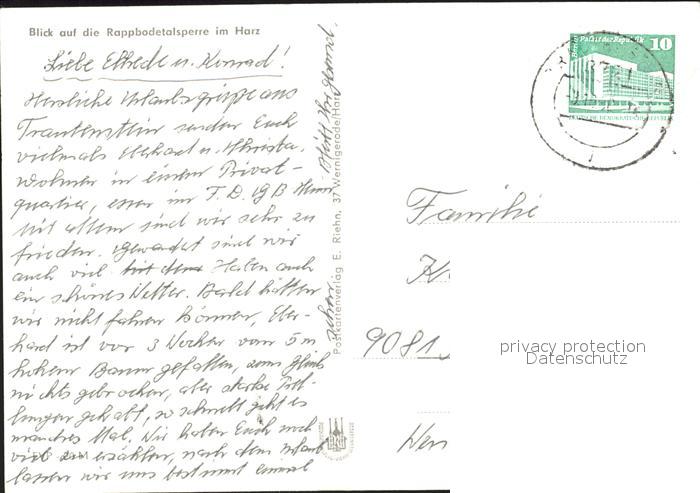 Blick auf die Rappbodetalsperre im Harz
Liebe Elfrede u. Konrad!
Herzliche Urlaubsgrüße aus
Trautenstein senden Euch
vielmals Eberhard u. Christa.
Wohnen in einem Privat-
quartier, essen im F.D.G.B Heim
Mit allem sind wir sehr zu
frieden. Gewandert sind wir
auch viel Haben auch
ein schönes Wetter. Bald hätten
wir nicht fahren können, Eber-
hard ist vor 3 Wochen vom 5 m
hohem Baum gefallen, zum Glück
nichts gebrochen, aber starke Prel-
lungen gehabt, so schnell geht es
manches Mal. Wir haben Euch noch
viel zu erzählen, nach dem Urlaub
lassen wir uns bestimmt einmal
sehen
Bleibt Ihr gesund.
Postkartenverlag E. Riehn, 37 Wernigerode/Harz
Berlin Palast der Republik 10
DEUTSCHE DEMOKRATISCHE REPUBLIK
Familie
K
9081
Wer
privacy protection
Datenschutz